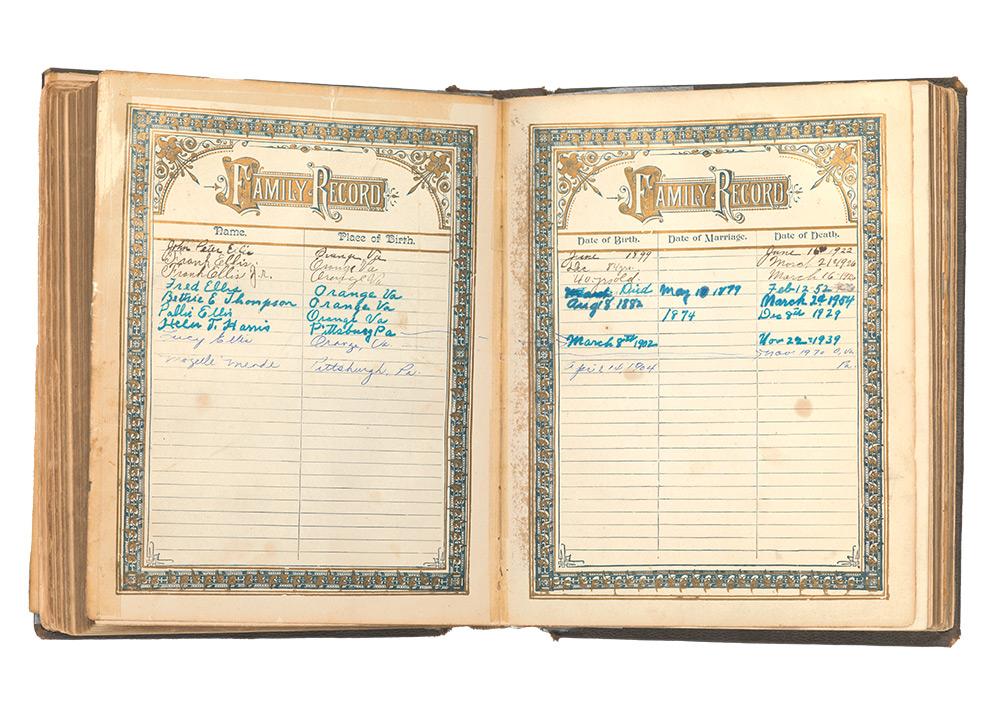 FAMILY RECORD
Name. Place of Birth.
John Peter Ellis Orange Va
Frank Ellis. Orange Va
Frank Ellis Jr. Orange Va
Fred Ellis Orange Va
Bettie E Thompson Orange Va
Pallie Ellis Orange Va
Helen T. Harris Pittsburg Pa
Lucy Ellis Orange, Va
Mozelle Meade Pittsburgh, Pa.
FAMILY RECORD
Date of Birth. Date of Marriage. Date of Death.
June 1899 June 16 1922
Dec March
March 16
Died May 1879 Feb 12 52
Aug 8 1882 March 29 1954
1874 Dec 8th 1929
March 8th 1902 Nov 22 = 1939
Nov 1970
April 14 1904 Pa.